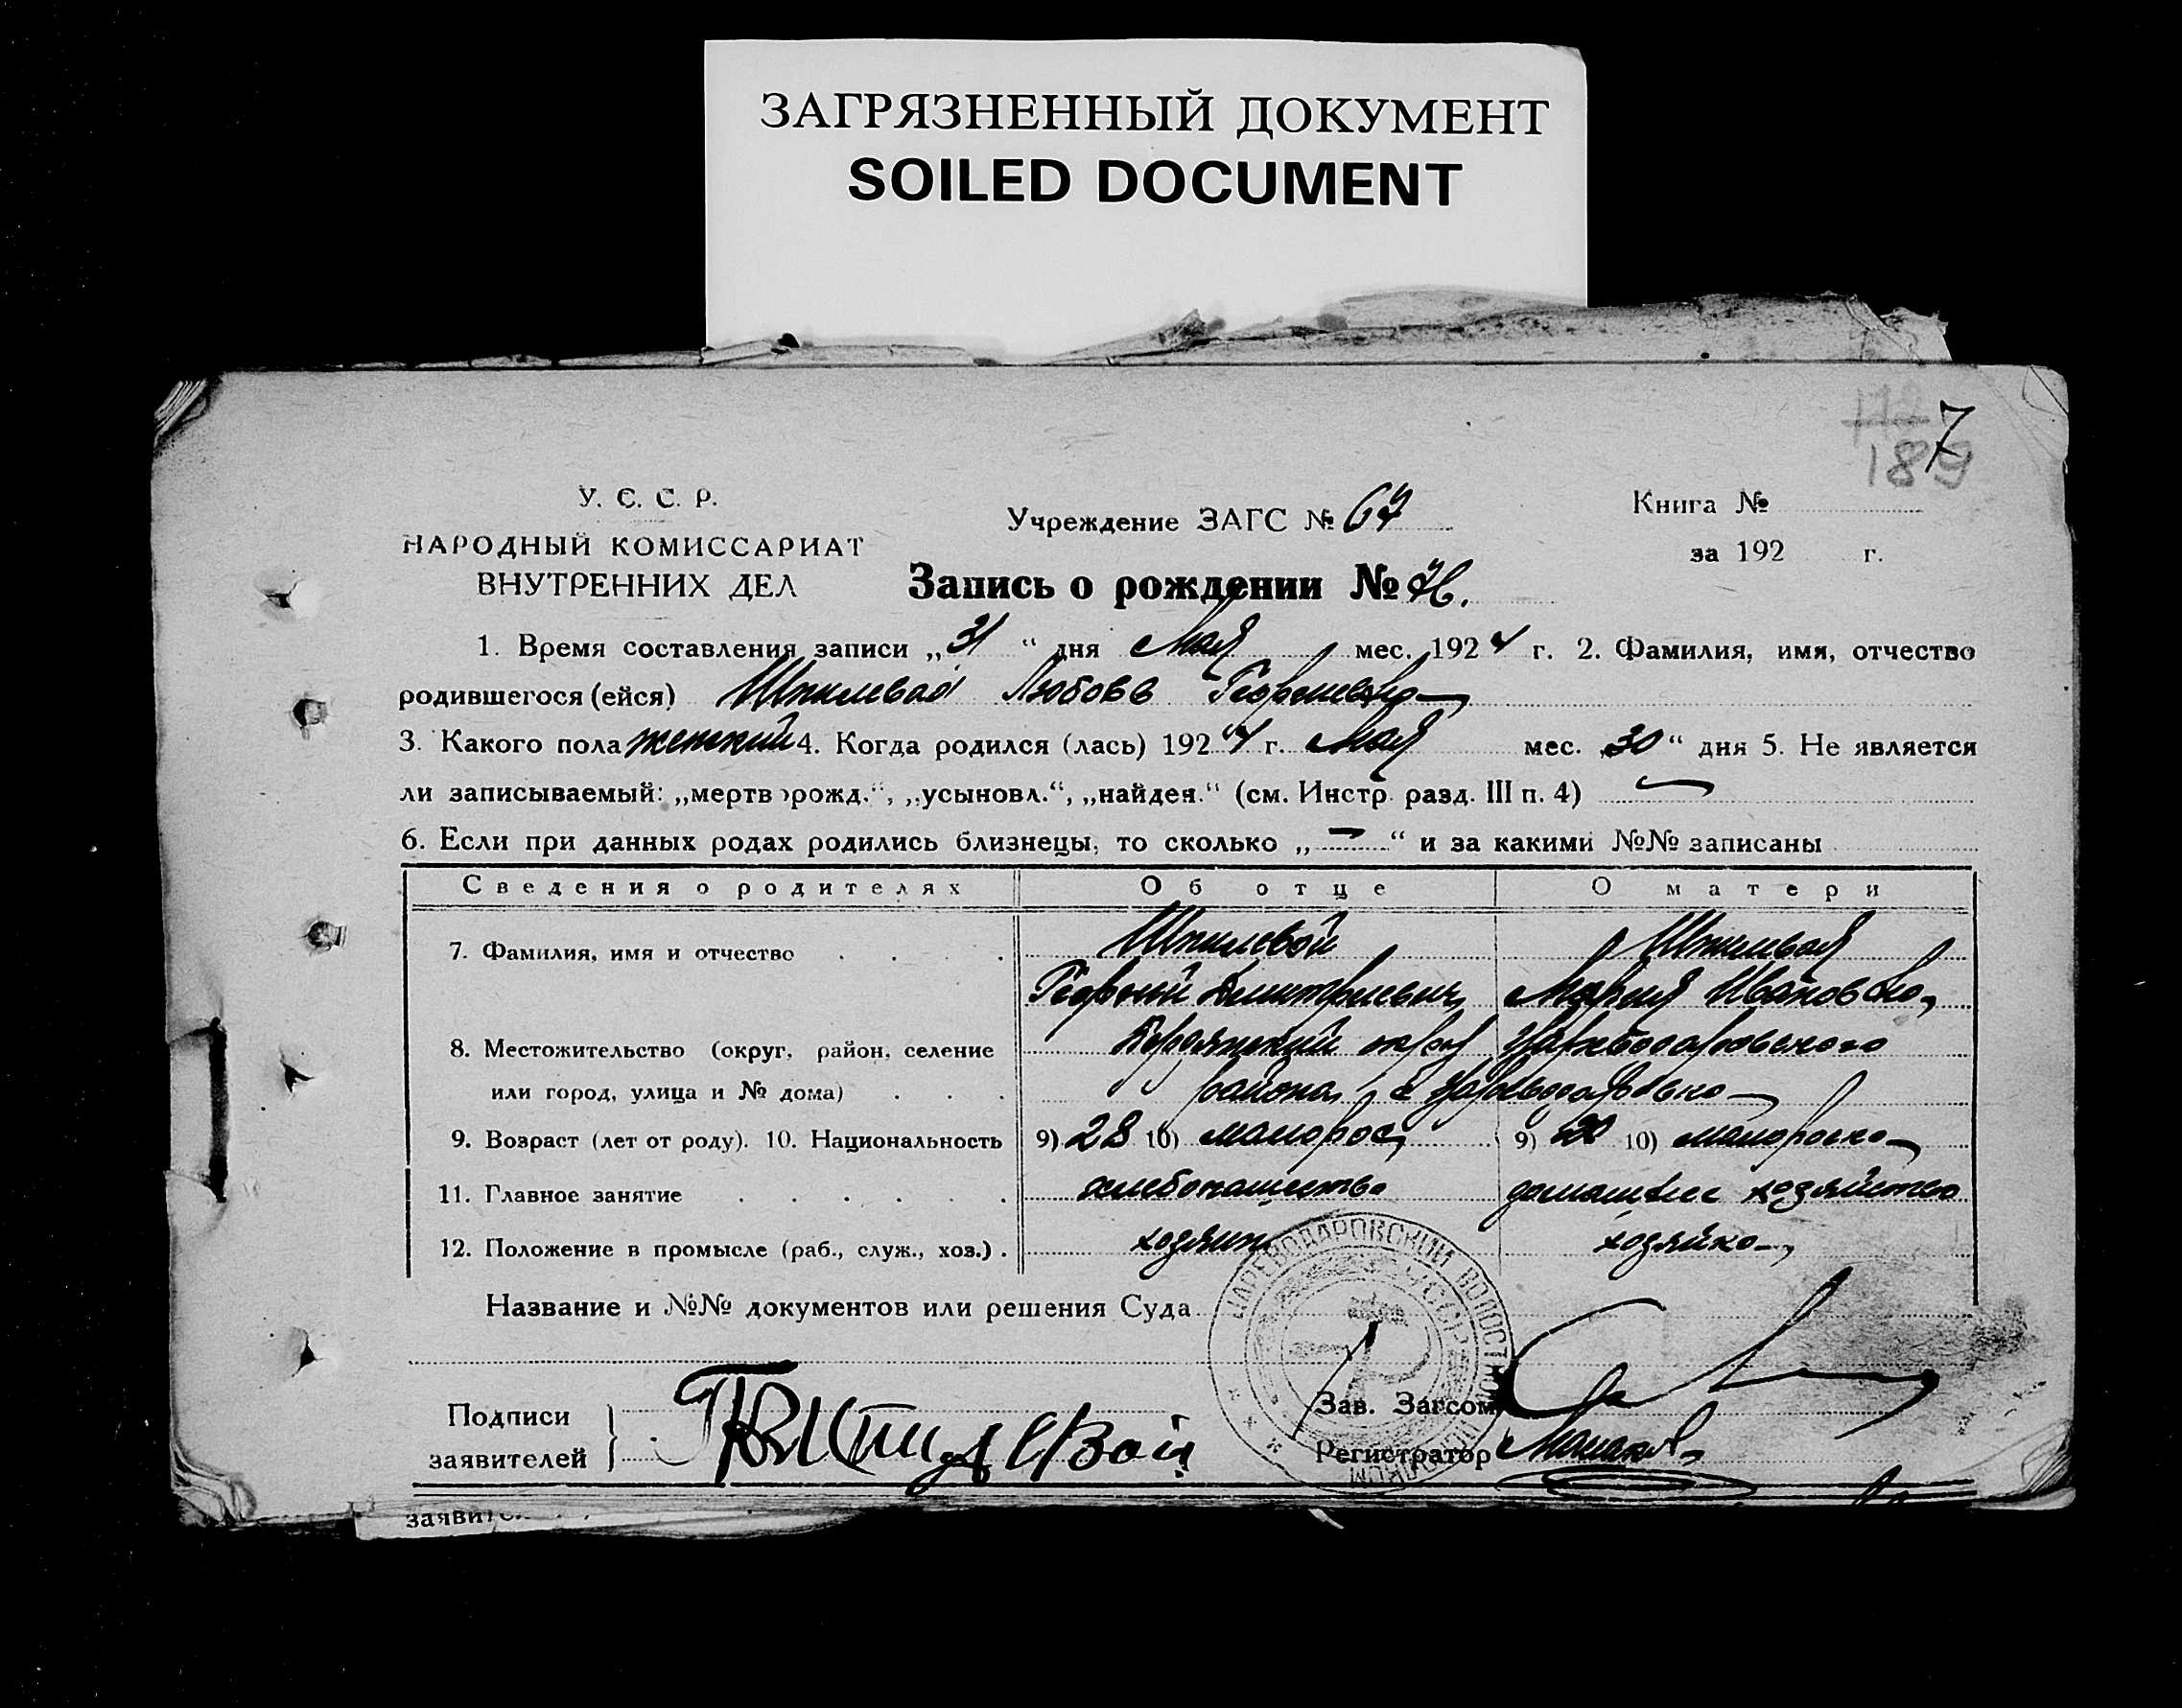 ЗАГРЯЗНЕННЫЙ ДОКУМЕНТ
SOILED DOCUMENT
7
189
У. С. С. Р.
НАРОДНЫЙ КОМИССАРИАТ
ВНУТРЕННИХ ДЕЛ
Учреждение ЗАГС № 67
Книга №
за 192 г.
Запись о рождении № 76.
1. Время составления записи „31“ дня Мая мес. 1924 г. 2. Фамилия, имя, отчество
родившегося (ейся) Шпилевая Любовь Георгиевна
3. Какого пола женский 4. Когда родился (лась) 1924 г. Мая мес. „30“ дня 5. Не является
ли записываемый: „мертворожд.“, „усыновл.“, „найден.“ (см. Инстр. разд. III п. 4) —
6. Если при данных родах родились близнецы, то сколько „—“ и за какими №№ записаны
Сведения о родителях Об отце О матери
7. Фамилия, имя и отчество Шпилевой Шпилевая
Георгий Дмитриевич Мария Ивановна
8. Местожительство (округ, район, селение Бердянский округ Цареводаровского
или город, улица и № дома) района, с Цареводаровка
9. Возраст (лет от роду). 10. Национальность 9) 28 10) малорос 9) 10) малороска
11. Главное занятие хлебопашество домашнее хозяйство
12. Положение в промысле (раб., служ., хоз.) хозяин хозяйка
Название и №№ документов или решения Суда
ЦАРЕВОДАРОВСКИЙ ВОЛОСТНОЙ
УССР
Подписи
заявителей
Шпилевой
Зав. Загсом
Регистратор
заявите